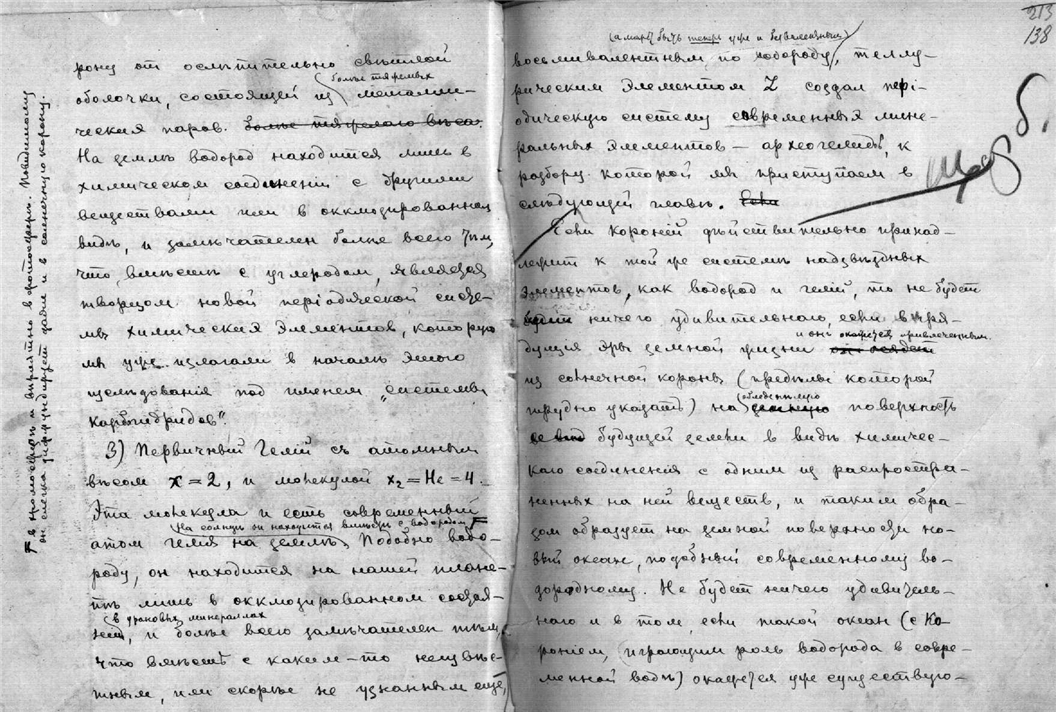 рону от ослѣпительно свѣтлой
(болѣе тяжелыхъ
оболочки, состоящей из металли-
ческих паров. болѣе тяжелаго вѣса.
На землѣ водород находится лишь в
химическом соединеніи с другими
веществами или в окклюдированном
видѣ, и замѣчателен болѣе всего тѣм,
что, вмѣстѣ с углеродом, является
творцом новой періодической систе-
мы химических элементов, которую
мы уже излагали в началѣ этого
изслѣдованія под именем „системы
Карбогидридов."
3) Первичный Гелій съ атомным
вѣсом x=2, и молекулой x₂=He=4.
Эта молекула и есть современный
На солнцѣ он находится вмѣстѣ с водородом F
атом гелія на землѣ. Подобно водо-
роду, он находится на нашей плане-
тѣ лишь в окклюдированном состоя-
(в урановых минералах
ніи, и болѣе всего замѣчателен тѣм,
что вмѣстѣ с каким-то неизвѣс-
тным, или скорѣе не узнанным еще,
F в хромосферѣ и вѣроятно в фотосферѣ. Повидимому
он слегка диффундирует даже и в солнечную корону.
213
138
(а может быть теперь уже и безвалентным)
восьмивалентным, по водороду, теллу-
рическим элементом Z создал пері-
одическую систему современных мине-
ральных элементов — археогелидов, к
разбору которой мы приступаем в
слѣдующей главѣ. Если
Если Короній дѣйствительно принад-
лежит к той же системѣ надзвѣздных
элементов, как водород и гелій, то не будет
ничего удивительного, если в гря-
и он окажется привлеченным
дущія эры земной жизни он осядет
из солнечной короны (предѣлы которой
(обледенѣлую
трудно указать) на земную поверхность
будущей земли в видѣ химичес-
каго соединенія с одним из распростра-
ненных на ней веществ, и таким обра-
зом образует на земной поверхности но-
вый океан, подобный современному во-
дородному. Не будет ничего удивитель-
наго и в том, если такой океан (с Ко-
роніем, играющим роль водорода в совре-
менной водѣ) окажется уже существую-